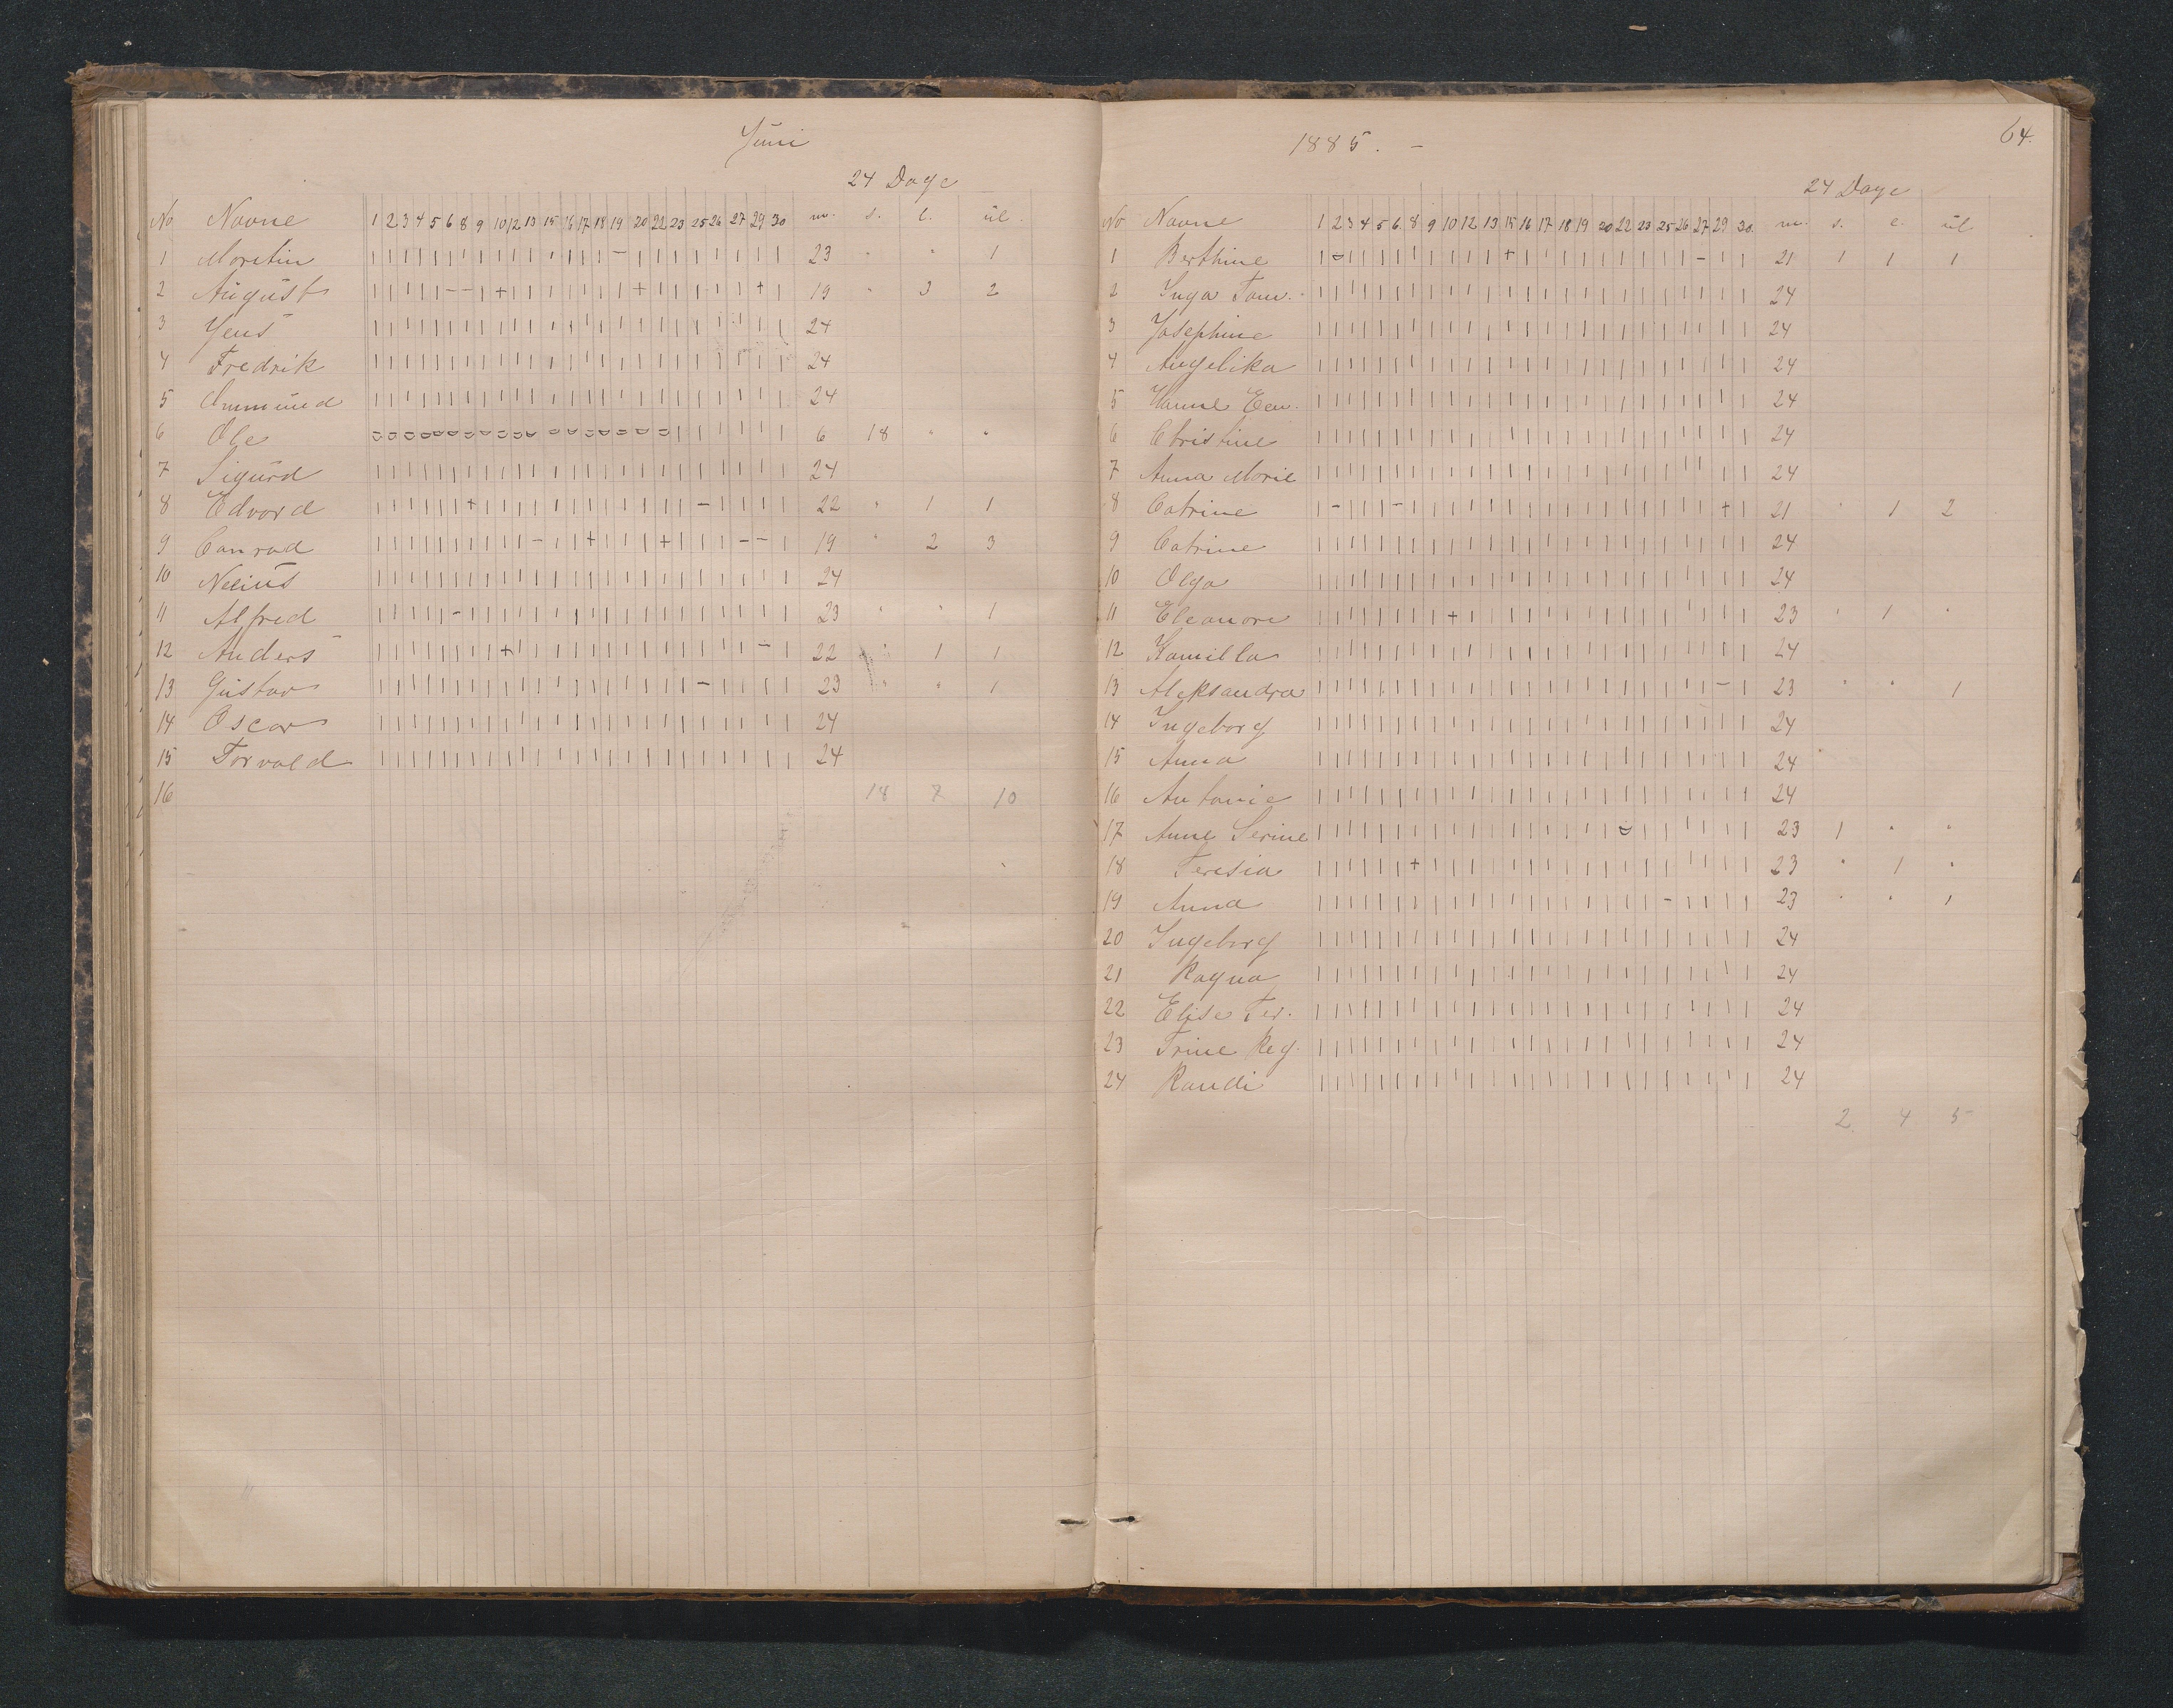 Juni
24 Dage
No Navne 1 2 3 4 5 6 8 9 10 12 13 15 16 17 18 19 20 22 23 25 26 27 29 30 m. s. l. ul.
1 Moritin | | | | | | | | | | | | | | | – | | | | | | | | 23 " " 1
2 August | | | | | – – | + | | | | | | | + | | | | | + | 19 " 3 2
3 Jens | | | | | | | | | | | | | | | | | | | | | | | | 24
4 Fredrik | | | | | | | | | | | | | | | | | | | | | | | | 24
5 Ammund | | | | | | | | | | | | | | | | | | | | | | | | 24
6 Ole 6 18 " "
7 Sigurd | | | | | | | | | | | | | | | | | | | | | | | | 24
8 Edvard | | | | | | + | | | | | | | | | | | | – | | | | 22 " 1 1
9 Conrad | | | | | | | | | | – | | + | | | + | | | – – | 19 " 2 3
10 Nelius | | | | | | | | | | | | | | | | | | | | | | | | 24
11 Alfred | | | | | – | | | | | | | | | | | | | | | | | | 23 " " 1
12 Anders | | | | | | | | + | | | | | | | | | | | | | – | 22 " 1 1
13 Gustav | | | | | | | | | | | | | | | | | | | – | | | | 23 " " 1
14 Oscar | | | | | | | | | | | | | | | | | | | | | | | | 24
15 Torvald | | | | | | | | | | | | | | | | | | | | | | | | 24
16 18 7 10
1885. –
64.
24 Dage
No Navne 1 2 3 4 5 6 8 9 10 12 13 15 16 17 18 19 20 22 23 25 26 27 29 30. m. s. l. ul.
1 Berthine 21 1 1 1
2 Inga Tom. | | | | | | | | | | | | | | | | | | | | | | | | 24
3 Josephine | | | | | | | | | | | | | | | | | | | | | | | | 24
4 Angelika | | | | | | | | | | | | | | | | | | | | | | | | 24
5 Hanne | | | | | | | | | | | | | | | | | | | | | | | | 24
6 Christine | | | | | | | | | | | | | | | | | | | | | | | | 24
7 Anna Marie | | | | | | | | | | | | | | | | | | | | | | | | 24
8 Catrine | – | | | – | | | | | | | | | | | | | | | | + | 21 " 1 2
9 Catrine | | | | | | | | | | | | | | | | | | | | | | | | 24
10 Olga | | | | | | | | | | | | | | | | | | | | | | | | 24
11 Eleanore | | | | | | | | + | | | | | | | | | | | | | | | 23 " 1 "
12 Kamilla | | | | | | | | | | | | | | | | | | | | | | | | 24
13 Aleksandra | | | | | | | | | | | | | | | | | | | | | | – | 23 " " 1
14 Ingeborg | | | | | | | | | | | | | | | | | | | | | | | | 24
15 Anna | | | | | | | | | | | | | | | | | | | | | | | | 24
16 Antonie | | | | | | | | | | | | | | | | | | | | | | | | 24
17 Anne Serine 23 1 " "
18 Teresia | | | | | | + | | | | | | | | | | | | | | | | | 23 " 1 "
19 Anna | | | | | | | | | | | | | | | | | | | – | | | | 23 " " 1
20 Ingeborg | | | | | | | | | | | | | | | | | | | | | | | | 24
21 Ragna | | | | | | | | | | | | | | | | | | | | | | | | 24
22 Elise Ter. | | | | | | | | | | | | | | | | | | | | | | | | 24
23 Trine Reg. | | | | | | | | | | | | | | | | | | | | | | | | 24
24 Randi | | | | | | | | | | | | | | | | | | | | | | | | 24
2 4 5